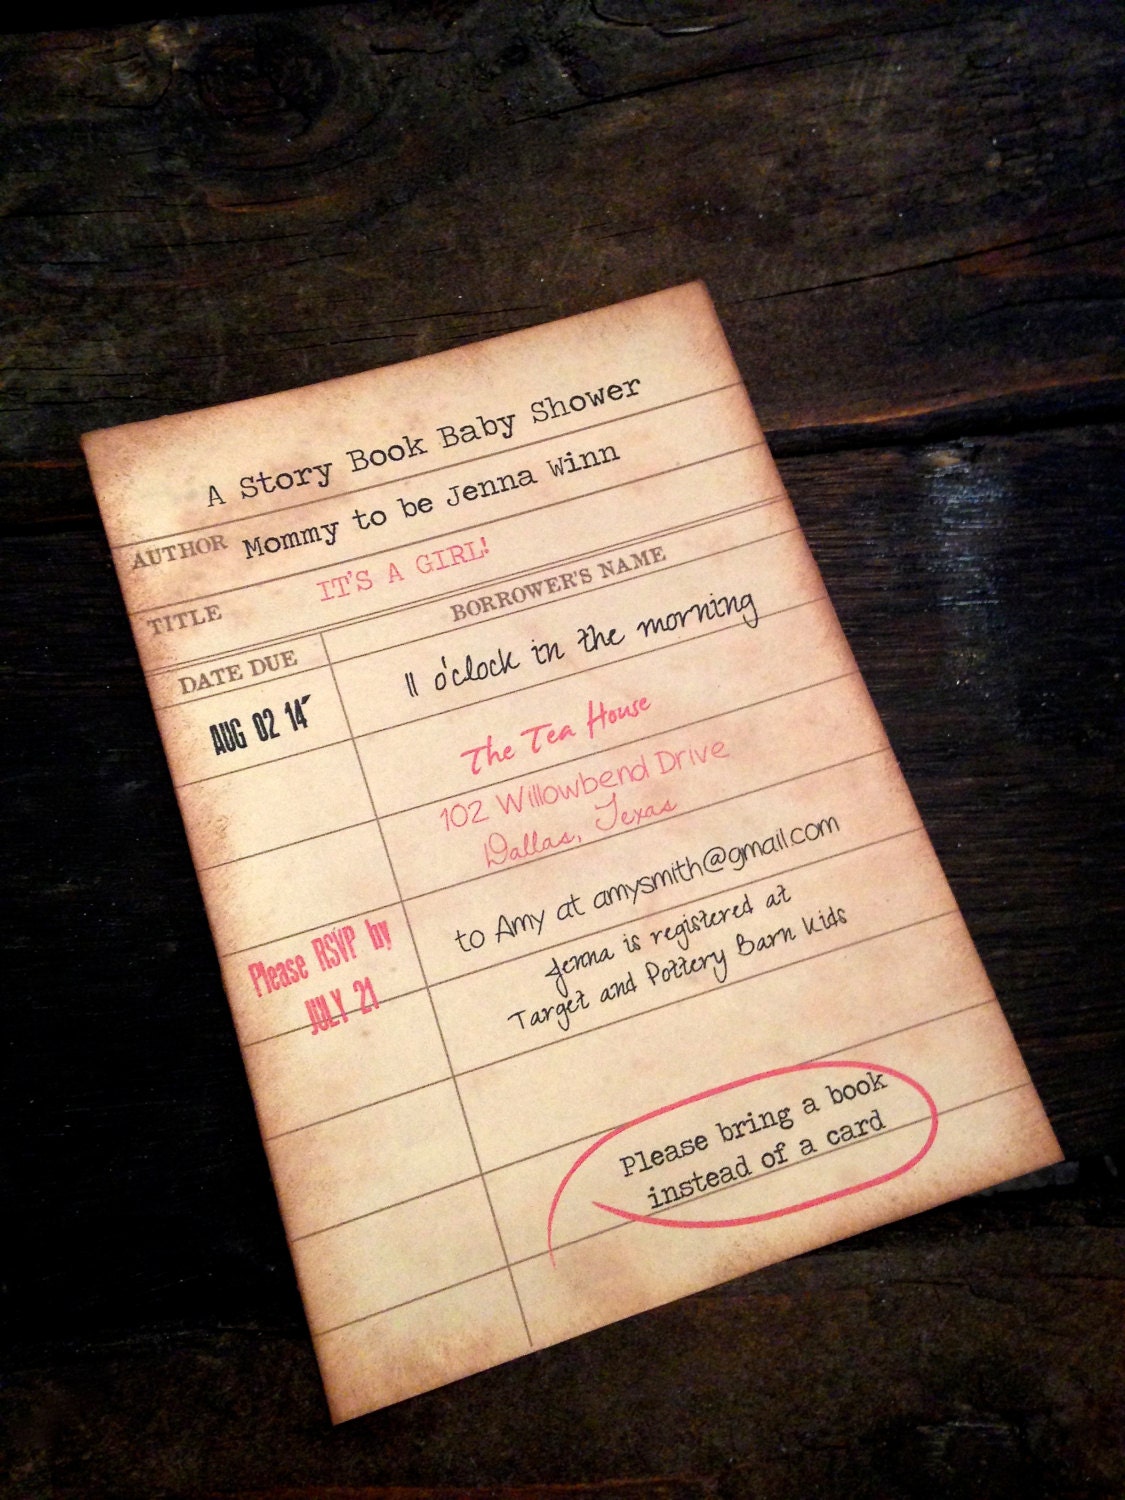 A Story Book Baby Shower
AUTHOR Mommy to be Jenna Winn
TITLE IT'S A GIRL!
DATE DUE BORROWER'S NAME
AUG 02 14' 11 o'clock in the morning
The Tea House
102 Willowbend Drive
Dallas, Texas
Please RSVP by to Amy at amysmith@gmail.com
JULY 21 Jenna is registered at
Target and Pottery Barn Kids
Please bring a book
instead of a card